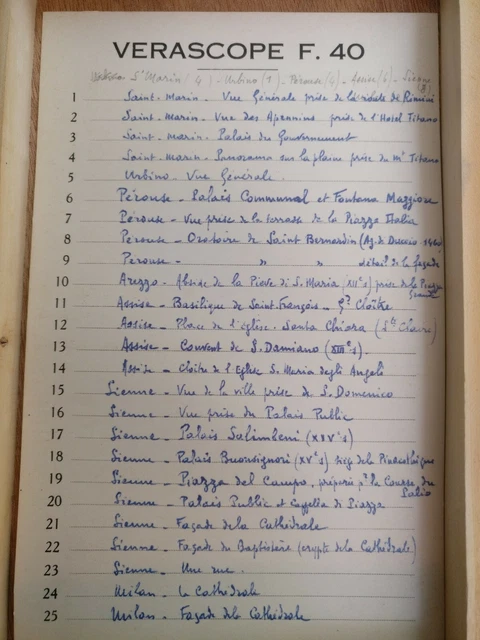 VERASCOPE F. 40
St Marin (4) - Urbino (1) - Pérouse (4) - Assise (4) - Sienne
1 Saint-Marin - Vue Générale prise de la route de Rimini
2 Saint-Marin - Vue des Apennins prise de l'Hotel Titano
3 Saint-Marin - Palais du Gouvernement
4 Saint-Marin - Panorama sur la plaine prise du Mt Titano
5 Urbino - Vue Générale.
6 Pérouse - Palais Communal et Fontana Maggiore
7 Pérouse - Vue prise de la terrasse de la Piazza Italia
8 Pérouse - Oratoire de Saint Bernardin (Ag. de Duccio 1460)
9 Perouse - " " détail de la façade
10 Arezzo - Abside de la Pieve di S. Maria (XIIe s) prise de la Piazza Grande
11 Assise - Basilique de Saint-François - Gd Cloître
12 Assise - Place de l'église Santa Chiara (Ste Claire)
13 Assise - Convent de S. Damiano (XIIIe s).
14 Assise - Cloître de l'Eglise S. Maria degli Angeli
15 Sienne - Vue de la ville prise de S. Domenico
16 Sienne - Vue prise du Palais Public
17 Sienne - Palais Salimbeni (XIVe s)
18 Sienne - Palais Buonsignori (XVe s) siège de la Pinacothèque
19 Sienne - Piazza del Campo, préparée pr la Course du Palio
20 Sienne - Palais Public et Cappella di Piazza
21 Sienne - Façade de la Cathédrale
22 Sienne - Façade du Baptistère (crypte de la Cathédrale)
23 Sienne - Une rue.
24 Milan - La Cathédrale
25 Milan - Façade de la Cathédrale